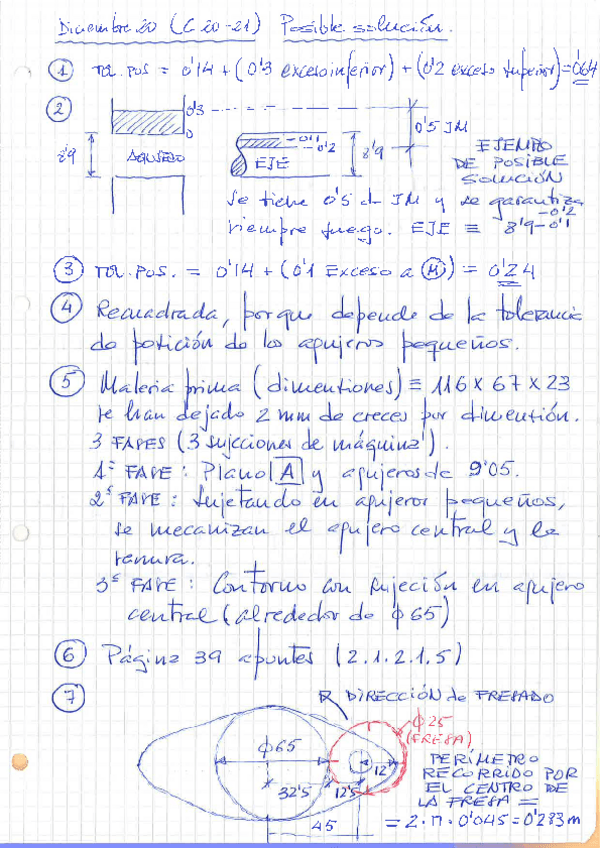 Diciembre 20 (C 20-21) Posible solución.
① TOL. POS = 0'14 + (0'3 exceso inferior) + (0'2 exceso superior) = 0'64
②
0'3
0
0'5 JM
8'9
AGUJERO
-0'1
-0'2
EJE
8'9
EJEMPLO
DE POSIBLE
SOLUCIÓN
Se tiene 0'5 de JM y se garantiza
siempre juego. EJE ≡ 8'9 -0'2 -0'1
③ TOL. POS. = 0'14 + (0'1 Exceso a Ⓜ) = 0'24
④ Recuadrada, porque depende de la tolerancia
de posición de los agujeros pequeños.
⑤ Materia prima (dimensiones) ≡ 116 x 67 x 23
se han dejado 2 mm de creces por dimensión.
3 FASES (3 sujecciones de máquina).
1ª FASE: Plano A y agujeros de 9'05.
2ª FASE: Sujetando en agujeros pequeños,
se mecanizan el agujero central y la
ranura.
3ª FASE: Contorno con sujeción en agujero
central (alrededor de ϕ 65)
⑥ Página 39 apuntes (2.1.2.1.5)
⑦
DIRECCIÓN de FRESADO
ϕ25
(FRESA)
ϕ65
12
32'5
12'5
45
PERÍMETRO
RECORRIDO POR
EL CENTRO DE
LA FRESA =
= 2·π·0'045 = 0'283 m